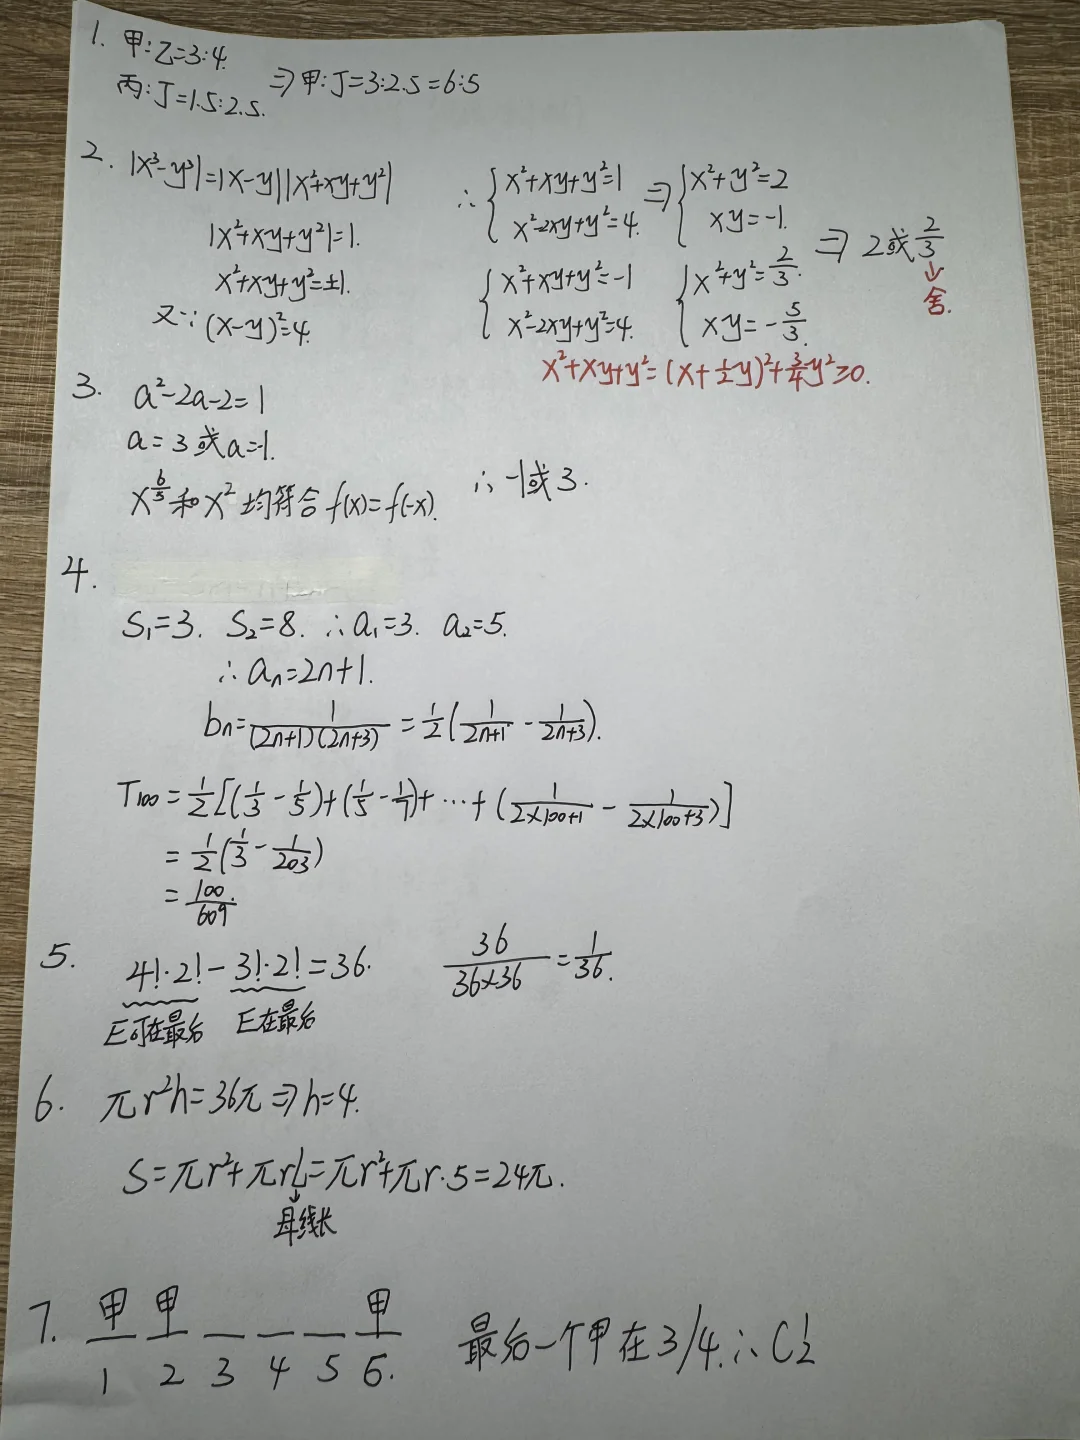 1. 甲:乙=3:4.
丙:丁=1.5:2.5. ⇒甲:丁=3:2.5=6:5
2. |x³-y³|=|x-y||x²+xy+y²|
|x²+xy+y²|=1.
x²+xy+y²=±1.
又∵(x-y)²=4.
∴ { x²+xy+y²=1 ⇒ { x²+y²=2
x²-2xy+y²=4. xy=-1.
{ x²+xy+y²=-1 { x²+y²=2/3.
x²-2xy+y²=4. xy=-5/3.
⇒ 2或2/3
↓
舍.
x²+xy+y²=(x+1/2y)²+3/4y²≥0.
3. a²-2a-2=1
a=3或a=-1.
x^(6/5)和x²均符合f(x)=f(-x). ∴-1或3.
4.
S₁=3. S₂=8. ∴a₁=3. a₂=5.
∴aₙ=2n+1.
bₙ=1/((2n+1)(2n+3))=1/2(1/(2n+1)-1/(2n+3)).
T₁₀₀=1/2[(1/3-1/5)+(1/5-1/7)+…+(1/(2×100+1)-1/(2×100+3))]
=1/2(1/3-1/203)
=100/609.
5. 4!·2!-3!·2!=36. 36/(36×36)=1/36.
E可在最后 E在最后
6. πr²h=36π⇒h=4.
S=πr²+πrl=πr²+πr·5=24π.
↓
母线长
7. 甲 甲 _ _ _ 甲 最后一个甲在3/4.∴C½
1 2 3 4 5 6.